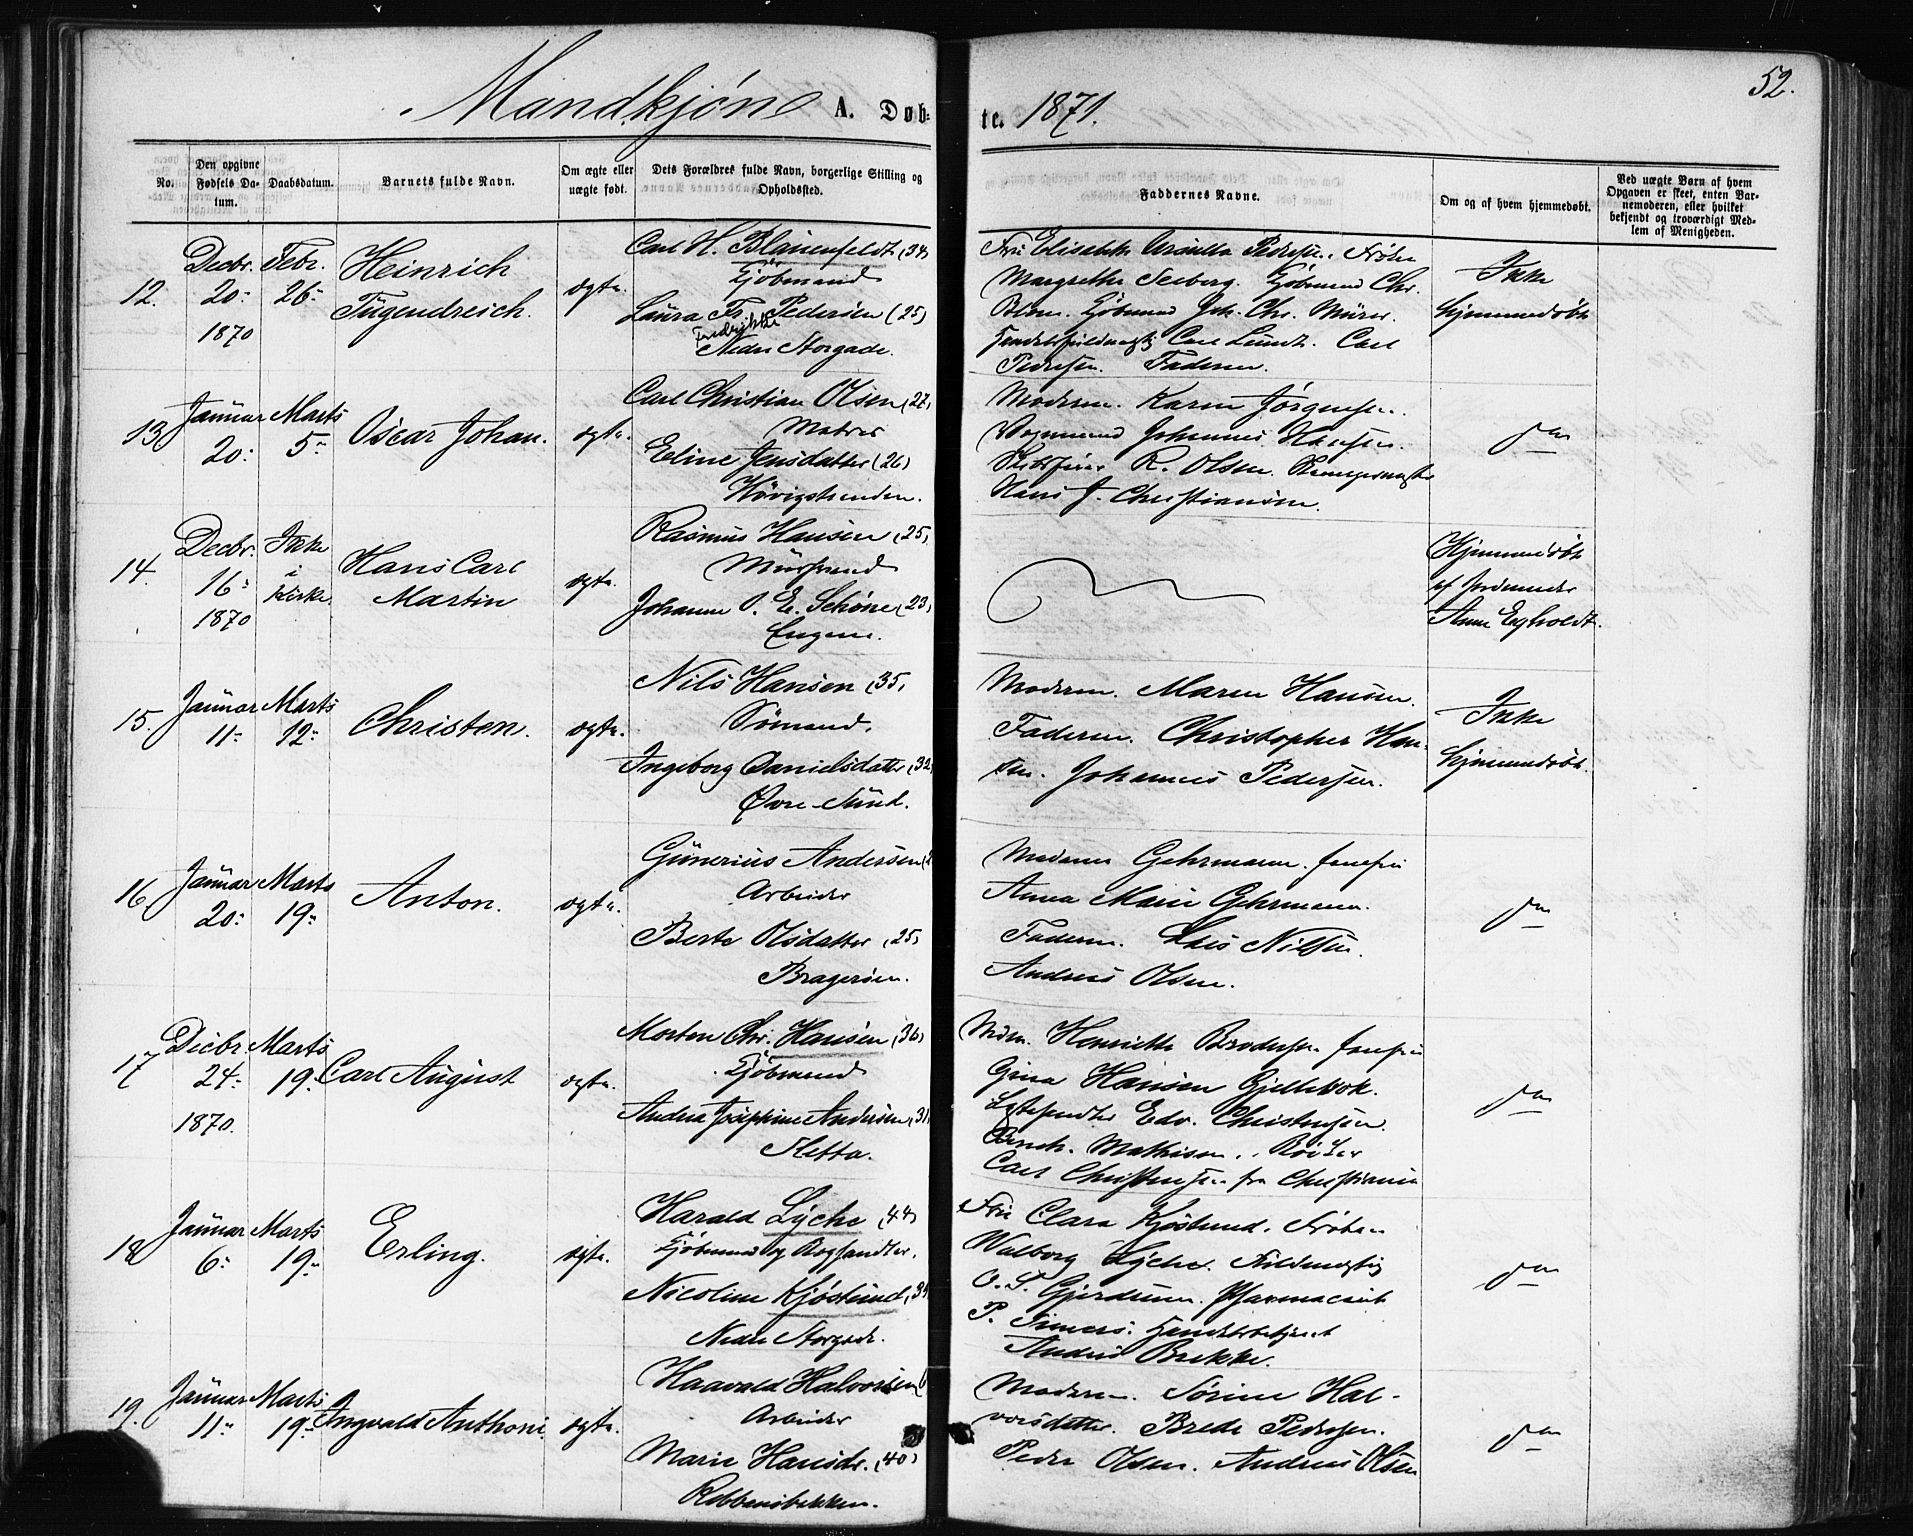 Mandkjøn A. Døb-
te. 1871.
52.
No.
Den opgivne
Fødsels Da-
tum.
Daabsdatum.
Barnets fulde Navn.
Om ægte eller
uægte født.
Dets Forældres fulde Navn, borgerlige Stilling og
Opholdssted.
Faddernes Navne.
Om og af hvem hjemmedøbt.
Ved uægte Børn af hvem
Opgaven er skeet, enten Bar-
nemoderen, eller hvilket
bekjendt og troværdigt Med-
lem af Menigheden.
12.
Decbr.
20
1870
Febr.
26
Heinrich
Tugendreich.
ægte.
Carl H. Blauenfeldt (34)
Kjøbmand
Laura Fr. Pedersen (25)
Fredrikke
Nedre Storgade.
Fru Elisabeth Ursulla Pedersen. Frøken
Margrethe Seeberg. Kjøbmand Chr.
Blom. Kjøbmand Joh. Chr.
Carl Lundt. Carl
Pedersen. Faderen.
Ikke
hjemmedøbt
13
Januar
20
Marts
5
Oscar Johan.
ægte.
Carl Christian Olsen (27)
Matros
Eline Jensdatter (26)
Moderen. Karen Jørgensen.
Vognmand Johannes Hansen.
R. Olsen.
Hans J. Christiansen.
do
14.
Decbr.
16
1870
Ikke
i
Kirke.
Hans Carl
Martin
ægte.
Rasmus Hansen (25)
Muursvend
Johanne O. E. Schøne (23)
Engene.
Hjemmedøbt
af Jordmoder
Anne Egholdt.
15.
Januar
11
Marts
12
Christen.
ægte.
Nils Hansen (35)
Sømand.
Ingeborg Danielsdatter (32)
Øvre Sund.
Moderen. Maren Hansen.
Faderen. Christopher Han-
sen. Johannes Pedersen.
Ikke
hjemmedøbt.
16
Januar
20
Marts
19
Anton.
ægte.
Gunerius Andersen
Arbeider
Berte Olsdatter (25)
Bragerøen.
Madame Gehrmann. Jomfru
Anna Marie Gehrmann.
Faderen. Lars Nilsen.
Andreas Olsen.
do
17
Decbr.
24
1870.
Marts
19
Carl August
ægte.
Morten Chr. Hansen (36)
Kjøbmand
Andrea Josephine Andersen (31)
Kletta.
Mdm. Henriette Brodersen Jomfru
Gina Hansen Gjellebæk.
Edv. Christensen.
Mathisen.
Carl Christensen fra Christiania
do
18
Januar
6
Marts
19
Erling.
ægte.
Harald Lyche (44)
Kjøbmand og Boghandler.
Nicoline Kjøslund,
Nedre Storgade.
Fru Clara Kjøslund. Frøken
Walborg Lyche. Fuldmægtig
O. S. Gjerdrum. Pharmaceut
P. Handelsbetjent
Andreas Brekke.
do
19.
Januar
11
Marts
19
Ingvald Anthoni
ægte.
Haavald Halvorsen
Arbeider
Marie Hansdr. (40)
Kobbersbakken.
Moderen. Sørine Hal-
vorsdatter. Brede Pedersen.
Peder Olsen. Andreas Olsen
do